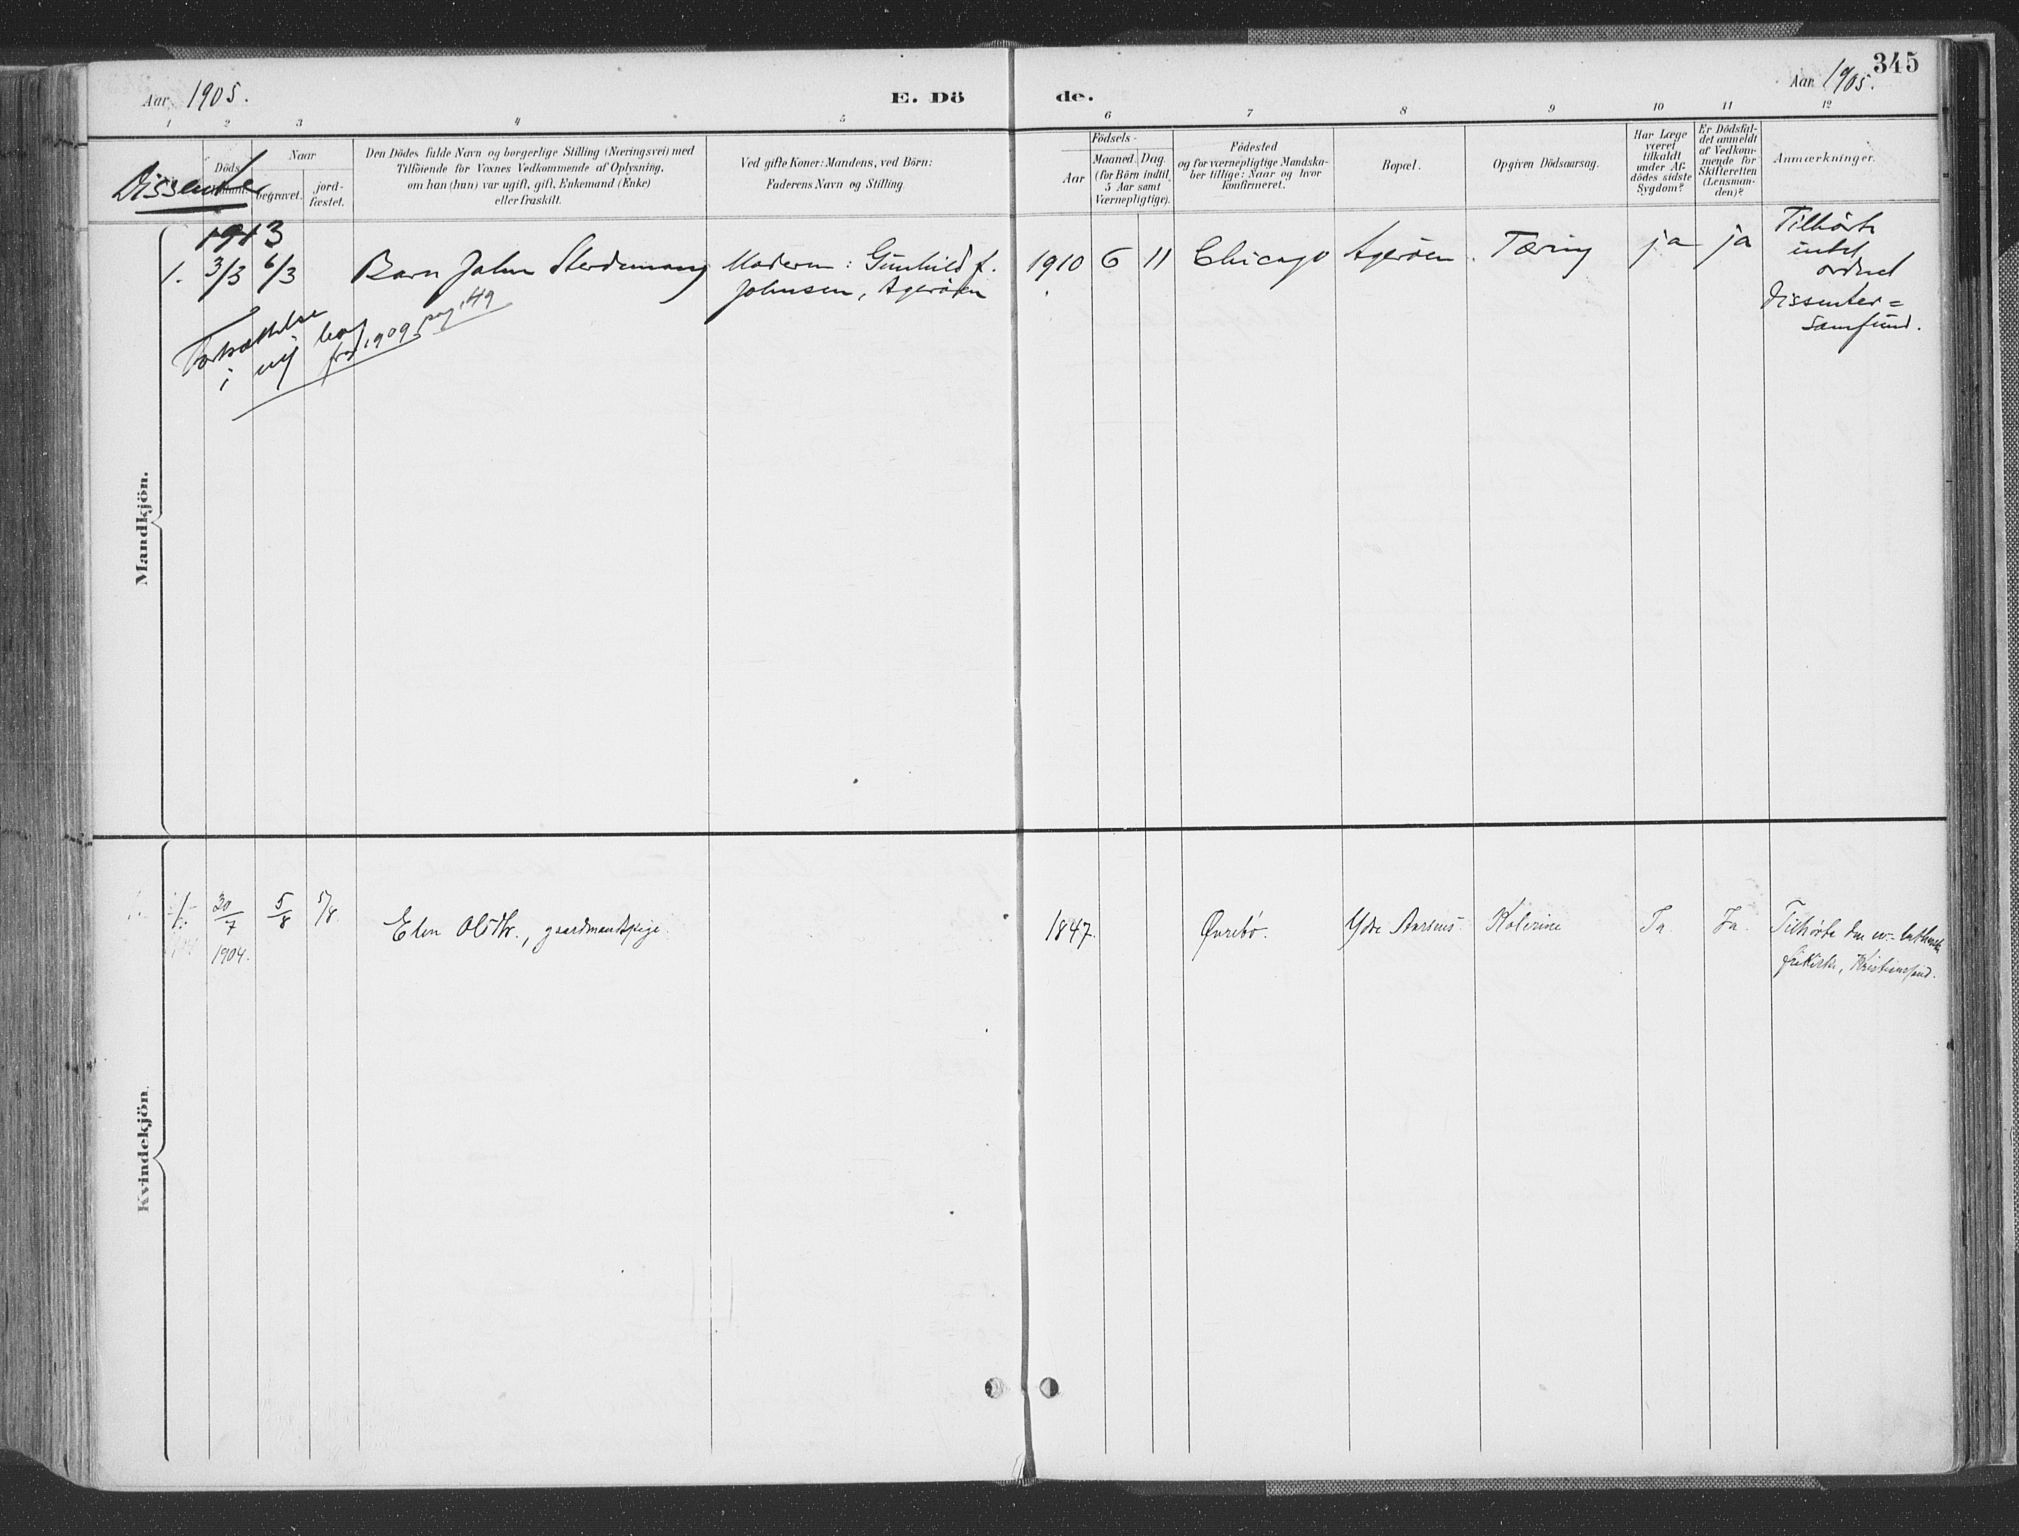 345
Aar 1905.
E. Dö
de.
Aar 1905.
1 2 3 4 5 6 7 8 9 10 11 12
Dissenter
Döds
Naar
begravet.
jord-
fæstet.
Den Dödes fulde Navn og borgerlige Stilling (Næringsvei) med
Tilföiende for Voxnes Vedkommende af Oplysning,
om han (hun) var ugift, gift, Enkemand (Enke)
eller fraskilt.
Ved gifte Koner: Mandens, ved Börn:
Faderens Navn og Stilling.
Födsels-
Aar
Maaned. Dag.
(for Börn indtil
5 Aar samt
Værnepligtige).
Födested
og for værnepligtige Mandska-
ber tillige: Naar og hvor
konfirmeret.
Bopæl.
Opgiven Dödsaarsag.
Har Læge
været
tilkaldt
under Af-
dödes sidste
Sygdom?
Er Dödsfal-
det anmeldt
af Vedkom-
mende for
Skifteretten
(Lensman-
den)?
Anmærkninger.
Mandkjön.
1913
1. 3/3 6/3 Barn John Modern: Gunhild f. 1910 6 11 Chicago Agerøen. Tæring ja ja Tilhørte
Johnsen, Agerøen
intet
ordnet
Dissenter=
Samfund.
Fortsættelse
i ny
fra 1909 pag. 149
Kvindekjön.
1. 30/7 5/8 5/8. Elen Olsdtr., gaardmandspige 1847. Øvrebø. Ydre Ja. Ja. Tilhørte den ev.-luthersk
1904.
frikirke, Kristianssand.